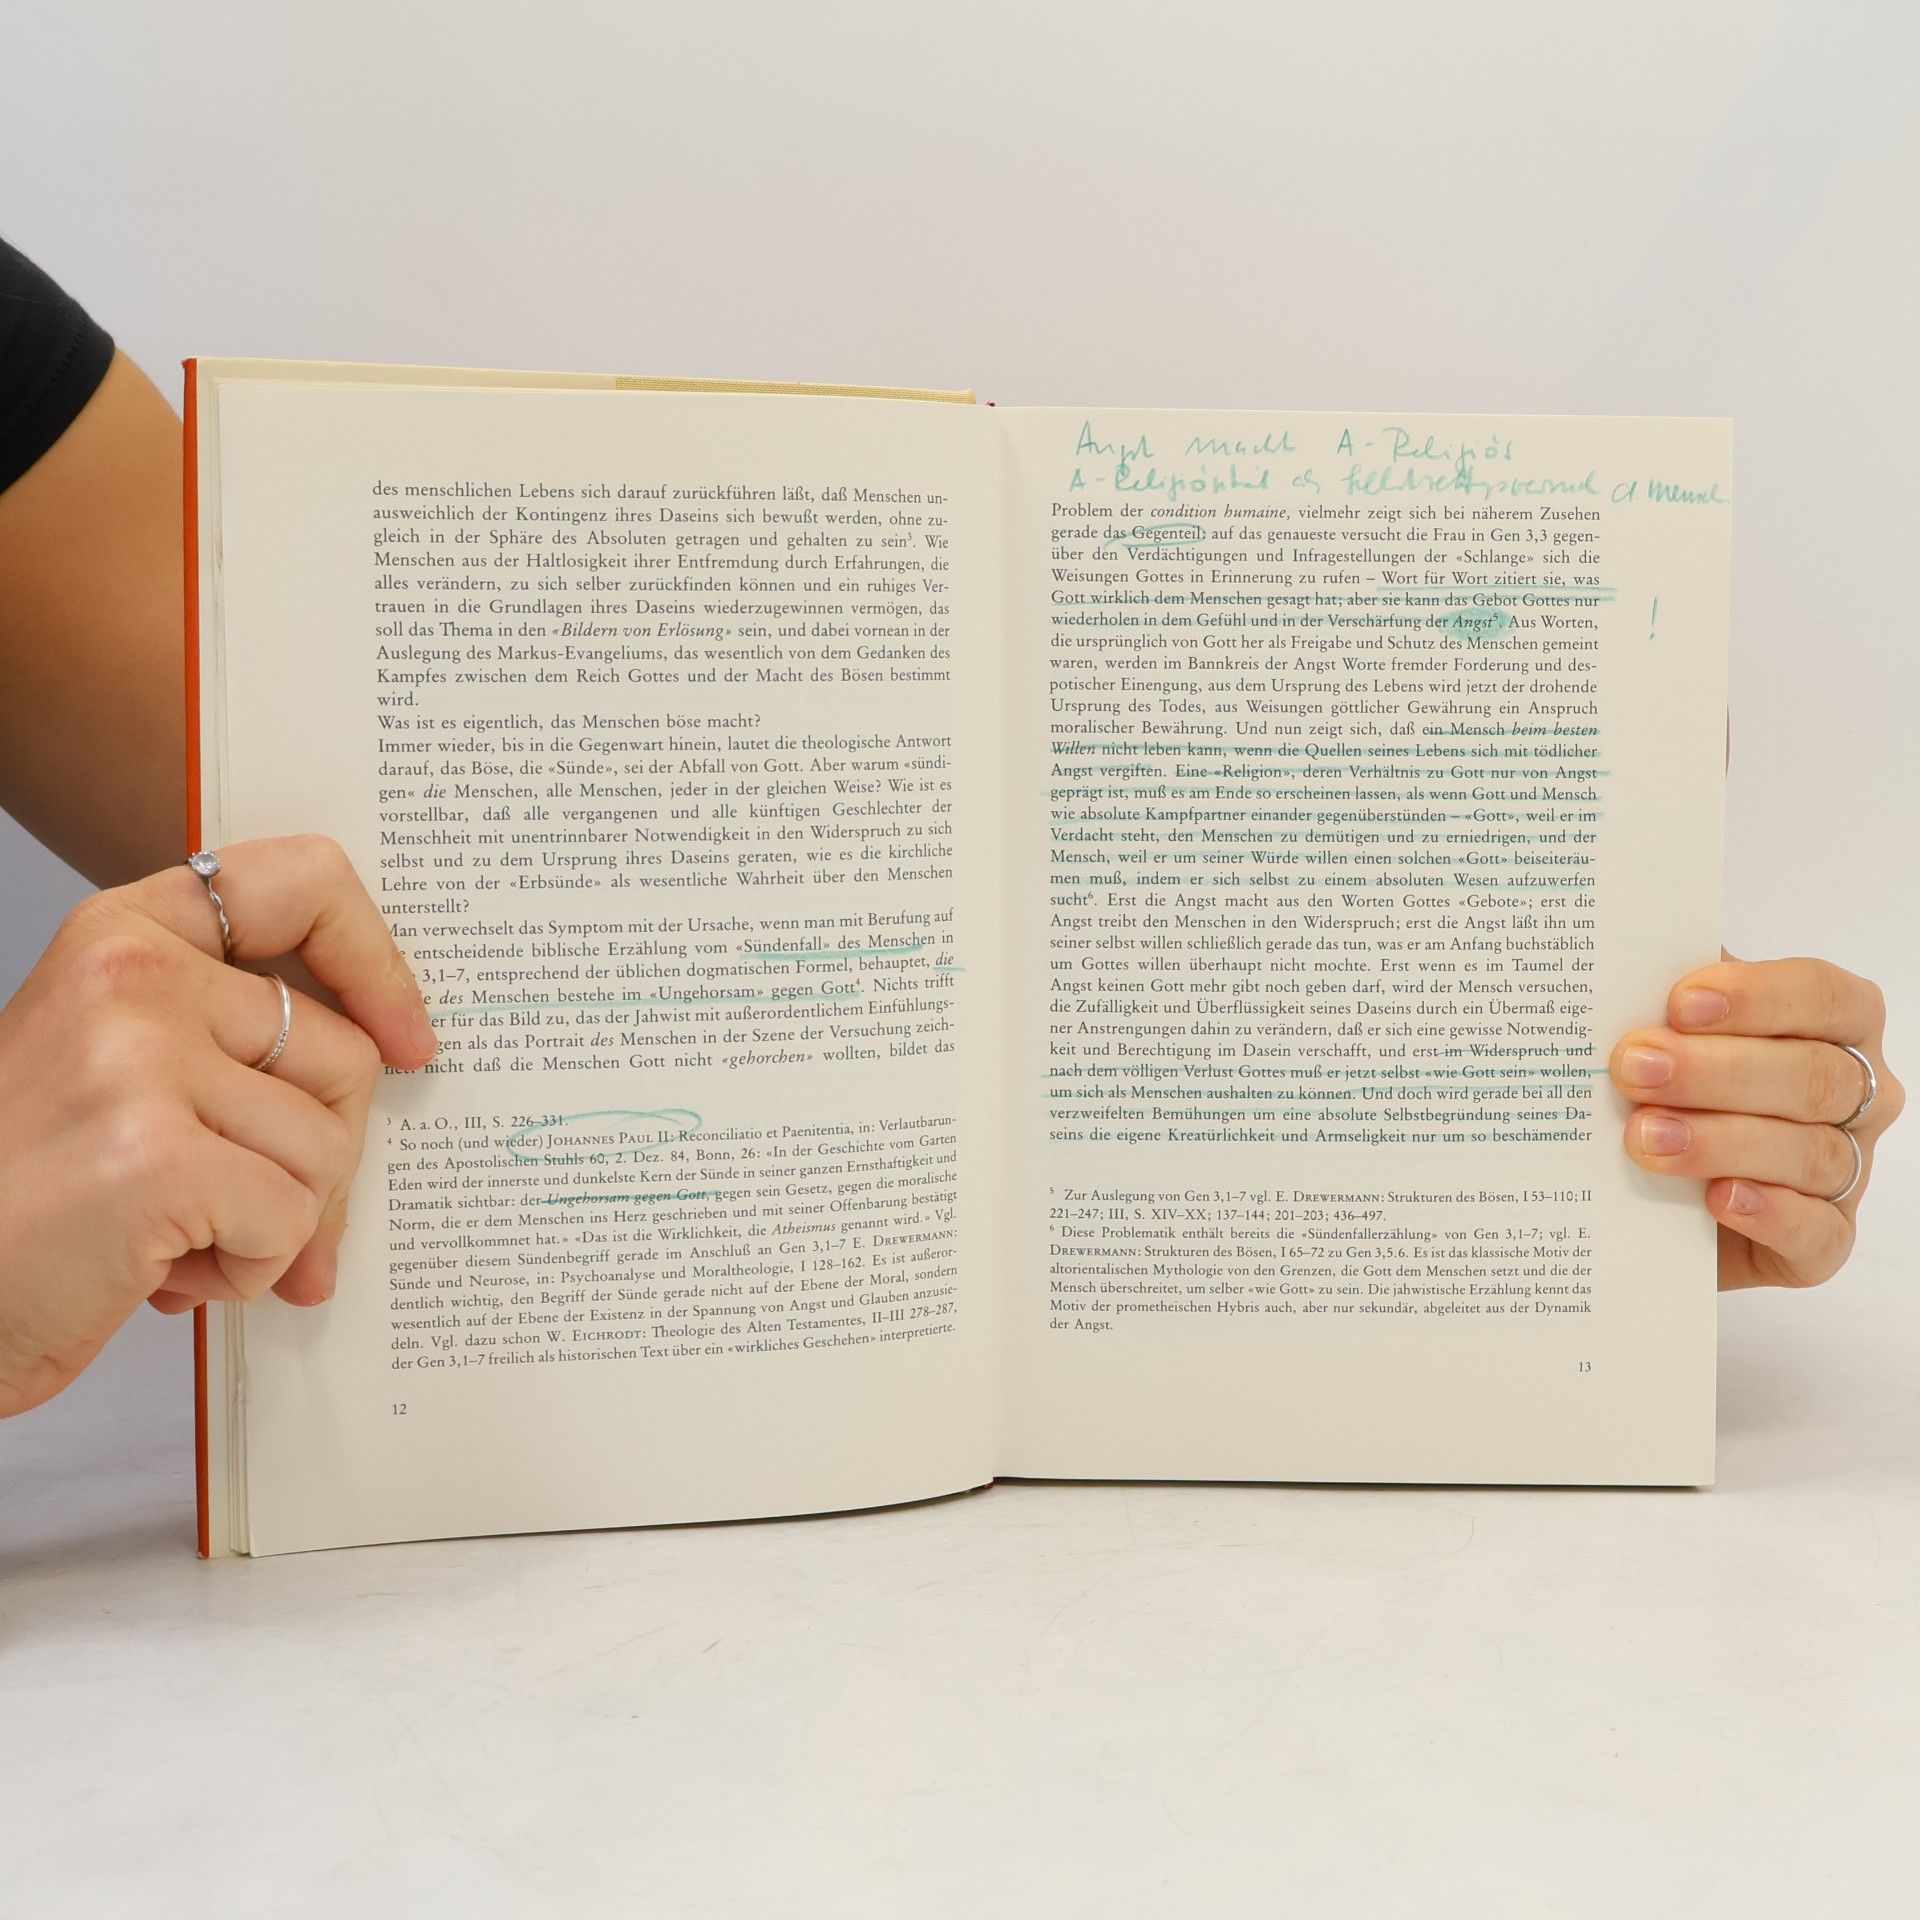 des menschlichen Lebens sich darauf zurückführen läßt, daß Menschen un-
ausweichlich der Kontingenz ihres Daseins sich bewußt werden, ohne zu-
gleich in der Sphäre des Absoluten getragen und gehalten zu sein³. Wie
Menschen aus der Haltlosigkeit ihrer Entfremdung durch Erfahrungen, die
alles verändern, zu sich selber zurückfinden können und ein ruhiges Ver-
trauen in die Grundlagen ihres Daseins wiederzugewinnen vermögen, das
soll das Thema in den «Bildern von Erlösung» sein, und dabei vornean in der
Auslegung des Markus-Evangeliums, das wesentlich von dem Gedanken des
Kampfes zwischen dem Reich Gottes und der Macht des Bösen bestimmt
wird.
Was ist es eigentlich, das Menschen böse macht?
Immer wieder, bis in die Gegenwart hinein, lautet die theologische Antwort
darauf, das Böse, die «Sünde», sei der Abfall von Gott. Aber warum «sündi-
gen« die Menschen, alle Menschen, jeder in der gleichen Weise? Wie ist es
vorstellbar, daß alle vergangenen und alle künftigen Geschlechter der
Menschheit mit unentrinnbarer Notwendigkeit in den Widerspruch zu sich
selbst und zu dem Ursprung ihres Daseins geraten, wie es die kirchliche
Lehre von der «Erbsünde» als wesentliche Wahrheit über den Menschen
unterstellt?
Man verwechselt das Symptom mit der Ursache, wenn man mit Berufung auf
entscheidende biblische Erzählung vom «Sündenfall» des Menschen in
3,1–7, entsprechend der üblichen dogmatischen Formel, behauptet, die
des Menschen bestehe im «Ungehorsam» gegen Gott⁴. Nichts trifft
er für das Bild zu, das der Jahwist mit außerordentlichem Einfühlungs-
gen als das Portrait des Menschen in der Szene der Versuchung zeich-
net: nicht daß die Menschen Gott nicht «gehorchen» wollten, bildet das
³ A. a. O., III, S. 226–331.
⁴ So noch (und wieder) JOHANNES PAUL II: Reconciliatio et Paenitentia, in: Verlautbarun-
gen des Apostolischen Stuhls 60, 2. Dez. 84, Bonn, 26: «In der Geschichte vom Garten
Eden wird der innerste und dunkelste Kern der Sünde in seiner ganzen Ernsthaftigkeit und
Dramatik sichtbar: der Ungehorsam gegen Gott, gegen sein Gesetz, gegen die moralische
Norm, die er dem Menschen ins Herz geschrieben und mit seiner Offenbarung bestätigt
und vervollkommnet hat.» «Das ist die Wirklichkeit, die Atheismus genannt wird.» Vgl.
gegenüber diesem Sündenbegriff gerade im Anschluß an Gen 3,1–7 E. DREWERMANN:
Sünde und Neurose, in: Psychoanalyse und Moraltheologie, I 128–162. Es ist außeror-
dentlich wichtig, den Begriff der Sünde gerade nicht auf der Ebene der Moral, sondern
wesentlich auf der Ebene der Existenz in der Spannung von Angst und Glauben anzusie-
deln. Vgl. dazu schon W. EICHRODT: Theologie des Alten Testamentes, II–III 278–287,
der Gen 3,1–7 freilich als historischen Text über ein «wirkliches Geschehen» interpretierte.
12
Angst macht A-Religiös
A-Religiösität als d. Mensch.
Problem der condition humaine, vielmehr zeigt sich bei näherem Zusehen
gerade das Gegenteil: auf das genaueste versucht die Frau in Gen 3,3 gegen-
über den Verdächtigungen und Infragestellungen der «Schlange» sich die
Weisungen Gottes in Erinnerung zu rufen – Wort für Wort zitiert sie, was
Gott wirklich dem Menschen gesagt hat; aber sie kann das Gebot Gottes nur
wiederholen in dem Gefühl und in der Verschärfung der Angst⁵. Aus Worten, !
die ursprünglich von Gott her als Freigabe und Schutz des Menschen gemeint
waren, werden im Bannkreis der Angst Worte fremder Forderung und des-
potischer Einengung, aus dem Ursprung des Lebens wird jetzt der drohende
Ursprung des Todes, aus Weisungen göttlicher Gewährung ein Anspruch
moralischer Bewährung. Und nun zeigt sich, daß ein Mensch beim besten
Willen nicht leben kann, wenn die Quellen seines Lebens sich mit tödlicher
Angst vergiften. Eine «Religion», deren Verhältnis zu Gott nur von Angst
geprägt ist, muß es am Ende so erscheinen lassen, als wenn Gott und Mensch
wie absolute Kampfpartner einander gegenüberstünden – «Gott», weil er im
Verdacht steht, den Menschen zu demütigen und zu erniedrigen, und der
Mensch, weil er um seiner Würde willen einen solchen «Gott» beiseiteräu-
men muß, indem er sich selbst zu einem absoluten Wesen aufzuwerfen
sucht⁶. Erst die Angst macht aus den Worten Gottes «Gebote»; erst die
Angst treibt den Menschen in den Widerspruch; erst die Angst läßt ihn um
seiner selbst willen schließlich gerade das tun, was er am Anfang buchstäblich
um Gottes willen überhaupt nicht mochte. Erst wenn es im Taumel der
Angst keinen Gott mehr gibt noch geben darf, wird der Mensch versuchen,
die Zufälligkeit und Überflüssigkeit seines Daseins durch ein Übermaß eige-
ner Anstrengungen dahin zu verändern, daß er sich eine gewisse Notwendig-
keit und Berechtigung im Dasein verschafft, und erst im Widerspruch und
nach dem völligen Verlust Gottes muß er jetzt selbst «wie Gott sein» wollen,
um sich als Menschen aushalten zu können. Und doch wird gerade bei all den
verzweifelten Bemühungen um eine absolute Selbstbegründung seines Da-
seins die eigene Kreatürlichkeit und Armseligkeit nur um so beschämender
⁵ Zur Auslegung von Gen 3,1–7 vgl. E. DREWERMANN: Strukturen des Bösen, I 53–110; II
221–247; III, S. XIV–XX; 137–144; 201–203; 436–497.
⁶ Diese Problematik enthält bereits die «Sündenfallerzählung» von Gen 3,1–7; vgl. E.
DREWERMANN: Strukturen des Bösen, I 65–72 zu Gen 3,5.6. Es ist das klassische Motiv der
altorientalischen Mythologie von den Grenzen, die Gott dem Menschen setzt und die der
Mensch überschreitet, um selber «wie Gott» zu sein. Die jahwistische Erzählung kennt das
Motiv der prometheischen Hybris auch, aber nur sekundär, abgeleitet aus der Dynamik
der Angst.
13